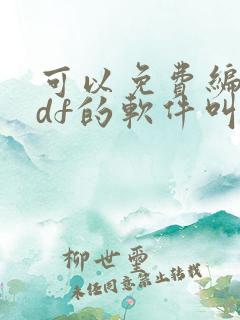 可以免费编
df的软件叫
柳世玺
未经同意禁止转载